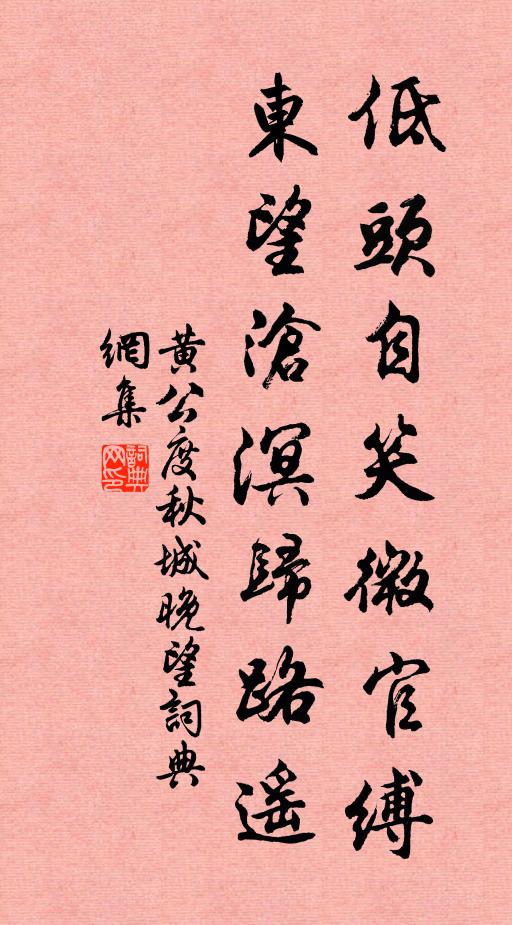 低頭自笑微官縛
東望滄溟歸路遥
黃公度秋城晚望詞典
網集
詞典
网印